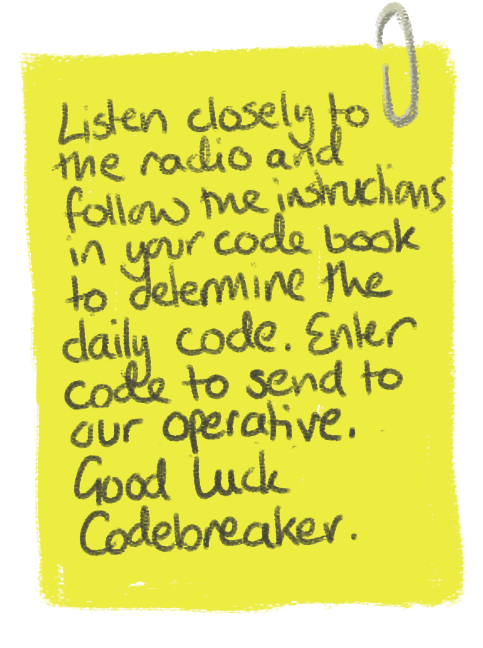 Listen closely to
the radio and
follow the instructions
in your code book
to determine the
daily code. Enter
code to send to
our operative.
Good Luck
Codebreaker.